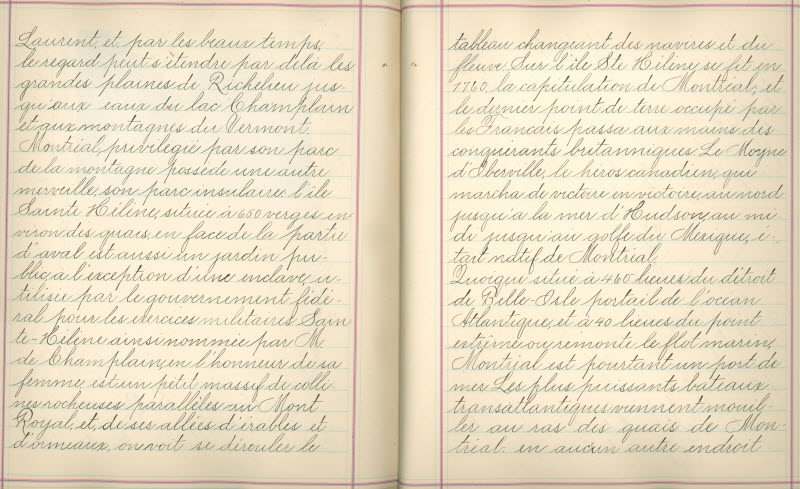 Laurent, et, par les beaux temps,
le regard peut s'étendre par delà les
grandes plaines de Richelieu jus-
qu'aux eaux du lac Champlain
et aux montagnes du Vermont.
Montréal, privilégié par son parc
de la montagne possède une autre
merveille, son parc insulaire: l'île
Sainte Hélène, située à 650 verges en
viron des quais, en face de la partie
d'aval est aussi un jardin pu-
blic, à l'exception d'une enclave, u-
tilisée par le gouvernement fidé-
ral pour les exercices militaires Sain
te-Hélène ainsi nommée par M.
de Champlain, en l'honneur de sa
femme est un petit massif de colli
nes rocheuses parallèles au Mont
Royal, et, de ses allées d'érables et
d'ormeaux, on voit se dérouler le
tableau changeant des navires et du
fleuve. Sur l'île Ste Hélène, se fit en
1760, la capitulation de Montréal, et
le dernier point de terre occupé par
les Francais passa aux mains des
conquérants britanniques. Le Moyne
d'Iberville, le héros canadien, qui
marcha de victoire en victoire, au nord
jusqu'a la mer d'Hudson, au mi-
di jusqu'au golfe du Mexique, é-
tait natif de Montréal.
Quoique située à 460 lieues du détroit
de Belle-Isle portail de l'océan
Atlantique, et à 40 lieues du point
extrême ou remonte le flot marin,
Montréal est pourtant un port de
mer. Les plus puissants bateaux
transatlantiques viennent mouil-
ler au ras des quais de Mon-
tréal: en aucun autre endroit